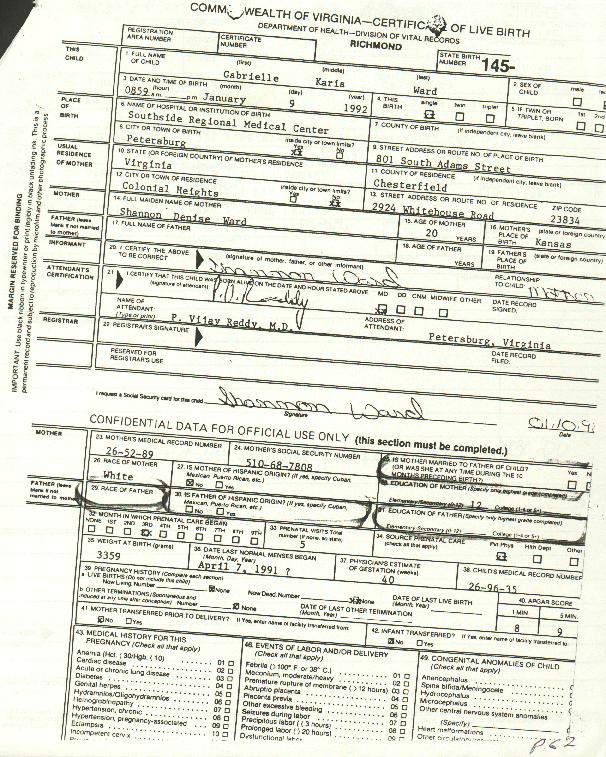 COMMONWEALTH OF VIRGINIA—CERTIFICATE OF LIVE BIRTH
DEPARTMENT OF HEALTH—DIVISION OF VITAL RECORDS
RICHMOND
REGISTRATION AREA NUMBER
CERTIFICATE NUMBER
STATE BIRTH NUMBER 145-
THIS CHILD
1. FULL NAME OF CHILD (first) (middle) (last)
Gabrielle Karia Ward
2. SEX OF CHILD male
3. DATE AND TIME OF BIRTH (hour) (month) (day) (year)
0859 a.m. p.m. January 9 1992
4. THIS BIRTH single twin triplet
5. IF TWIN OR TRIPLET, BORN 1st 2nd
PLACE OF BIRTH
6. NAME OF HOSPITAL OR INSTITUTION OF BIRTH
Southside Regional Medical Center
7. COUNTY OF BIRTH (if independent city, leave blank)
8. CITY OR TOWN OF BIRTH inside city or town limits? Yes No
Petersburg
9. STREET ADDRESS OR ROUTE NO. OF PLACE OF BIRTH
801 South Adams Street
USUAL RESIDENCE OF MOTHER
10. STATE (OR FOREIGN COUNTRY) OF MOTHER'S RESIDENCE
Virginia
11. COUNTY OF RESIDENCE (if independent city, leave blank)
Chesterfield
12. CITY OR TOWN OF RESIDENCE inside city or town limits? Yes No
Colonial Heights
13. STREET ADDRESS OR ROUTE NO. OF RESIDENCE ZIP CODE
2924 Whitehouse Road 23834
MOTHER
14. FULL MAIDEN NAME OF MOTHER
Shannon Denise Ward
15. AGE OF MOTHER
20 YEARS
16. MOTHER'S PLACE OF BIRTH (state or foreign country)
Kansas
FATHER (leave blank if not married to mother)
17. FULL NAME OF FATHER
18. AGE OF FATHER YEARS
19. FATHER'S PLACE OF BIRTH (state or foreign country)
INFORMANT
20. I CERTIFY THE ABOVE TO BE CORRECT (signature of mother, father, or other informant)
Shannon Ward
RELATIONSHIP TO CHILD
ATTENDANT'S CERTIFICATION
21. I CERTIFY THAT THIS CHILD WAS BORN ALIVE ON THE DATE AND HOUR STATED ABOVE
(signature of attendant)
MD DO CNM MIDWIFE OTHER
DATE RECORD SIGNED:
NAME OF ATTENDANT: (Type or print) P. Vijay Reddy, M.D.
ADDRESS OF ATTENDANT: Petersburg, Virginia
REGISTRAR
22. REGISTRAR'S SIGNATURE
DATE RECORD FILED:
RESERVED FOR REGISTRAR'S USE
MARGIN RESERVED FOR BINDING
IMPORTANT: Use black ribbon in typewriter or print legibly in black unfading ink. This is a permanent record and subject to reproduction by microfilm and other photographic process
I request a Social Security card for this child Shannon Ward
Signature Date
CONFIDENTIAL DATA FOR OFFICIAL USE ONLY (this section must be completed.)
MOTHER
23. MOTHER'S MEDICAL RECORD NUMBER
26-52-89
24. MOTHER'S SOCIAL SECURITY NUMBER
510-68-7808
25. IS MOTHER MARRIED TO FATHER OF CHILD? (OR WAS SHE AT ANY TIME DURING THE 10 MONTHS PRECEDING BIRTH?) Yes
26. RACE OF MOTHER
White
27. IS MOTHER OF HISPANIC ORIGIN? (If yes, specify Cuban, Mexican, Puerto Rican, etc.)
No Yes
28. EDUCATION OF MOTHER (Specify only highest grade completed)
Elementary/Secondary (0-12) 12 College (1-4 or 5+)
FATHER (leave blank if not married to mother)
29. RACE OF FATHER
30. IS FATHER OF HISPANIC ORIGIN? (If yes, specify Cuban, Mexican, Puerto Rican, etc.)
No Yes
31. EDUCATION OF FATHER (Specify only highest grade completed)
Elementary/Secondary (0-12) College (1-4 or 5+)
32. MONTH IN WHICH PRENATAL CARE BEGAN
NONE 1ST 2ND 3RD 4TH 5TH 6TH 7TH 8TH 9TH
33. PRENATAL VISITS Total number (if none, so state)
5
34. SOURCE PRENATAL CARE (check all that apply)
Pvt Phys Hlth Dept Other
35. WEIGHT AT BIRTH (grams)
3359
36. DATE LAST NORMAL MENSES BEGAN (Month, Day, Year)
April 7, 1991 ?
37. PHYSICIAN'S ESTIMATE OF GESTATION (weeks)
40
38. CHILD'S MEDICAL RECORD NUMBER
26-96-35
39. PREGNANCY HISTORY (Compare each section)
a. LIVE BIRTHS (Do not include this child)
Now Living Number None Now Dead Number None
DATE OF LAST LIVE BIRTH (Month, Year)
b. OTHER TERMINATIONS (Spontaneous and induced at any time after conception) Number None
DATE OF LAST OTHER TERMINATION (Month, Year)
40. APGAR SCORE
1 MIN 5 MIN
8 9
41. MOTHER TRANSFERRED PRIOR TO DELIVERY? If Yes, enter name of facility transferred from:
No Yes
42. INFANT TRANSFERRED? If Yes, enter name of facility transferred to:
No Yes
43. MEDICAL HISTORY FOR THIS PREGNANCY (Check all that apply)
Anemia (Hct. ⟨30/Hgb. ⟨10) 01
Cardiac disease 02
Acute or chronic lung disease 03
Diabetes 04
Genital herpes 05
Hydramnios/Oligohydramnios 06
Hemoglobinopathy 07
Hypertension, chronic 08
Hypertension, pregnancy-associated 09
Eclampsia
Incompetent cervix
46. EVENTS OF LABOR AND/OR DELIVERY (Check all that apply)
Febrile (⟩100° F. or 38° C.) 01
Meconium, moderate/heavy 02
Premature rupture of membrane (⟩12 hours) 03
Abruptio placenta 04
Placenta previa 05
Other excessive bleeding 06
Seizures during labor 07
Precipitous labor (⟨3 hours) 08
Prolonged labor (⟩20 hours) 09
Dysfunctional labor
49. CONGENITAL ANOMALIES OF CHILD (Check all that apply)
Anencephalus
Spina bifida/Meningocele
Hydrocephalus
Microcephalus
Other central nervous system anomalies
(Specify)
Heart malformations
Other circulatory
P62